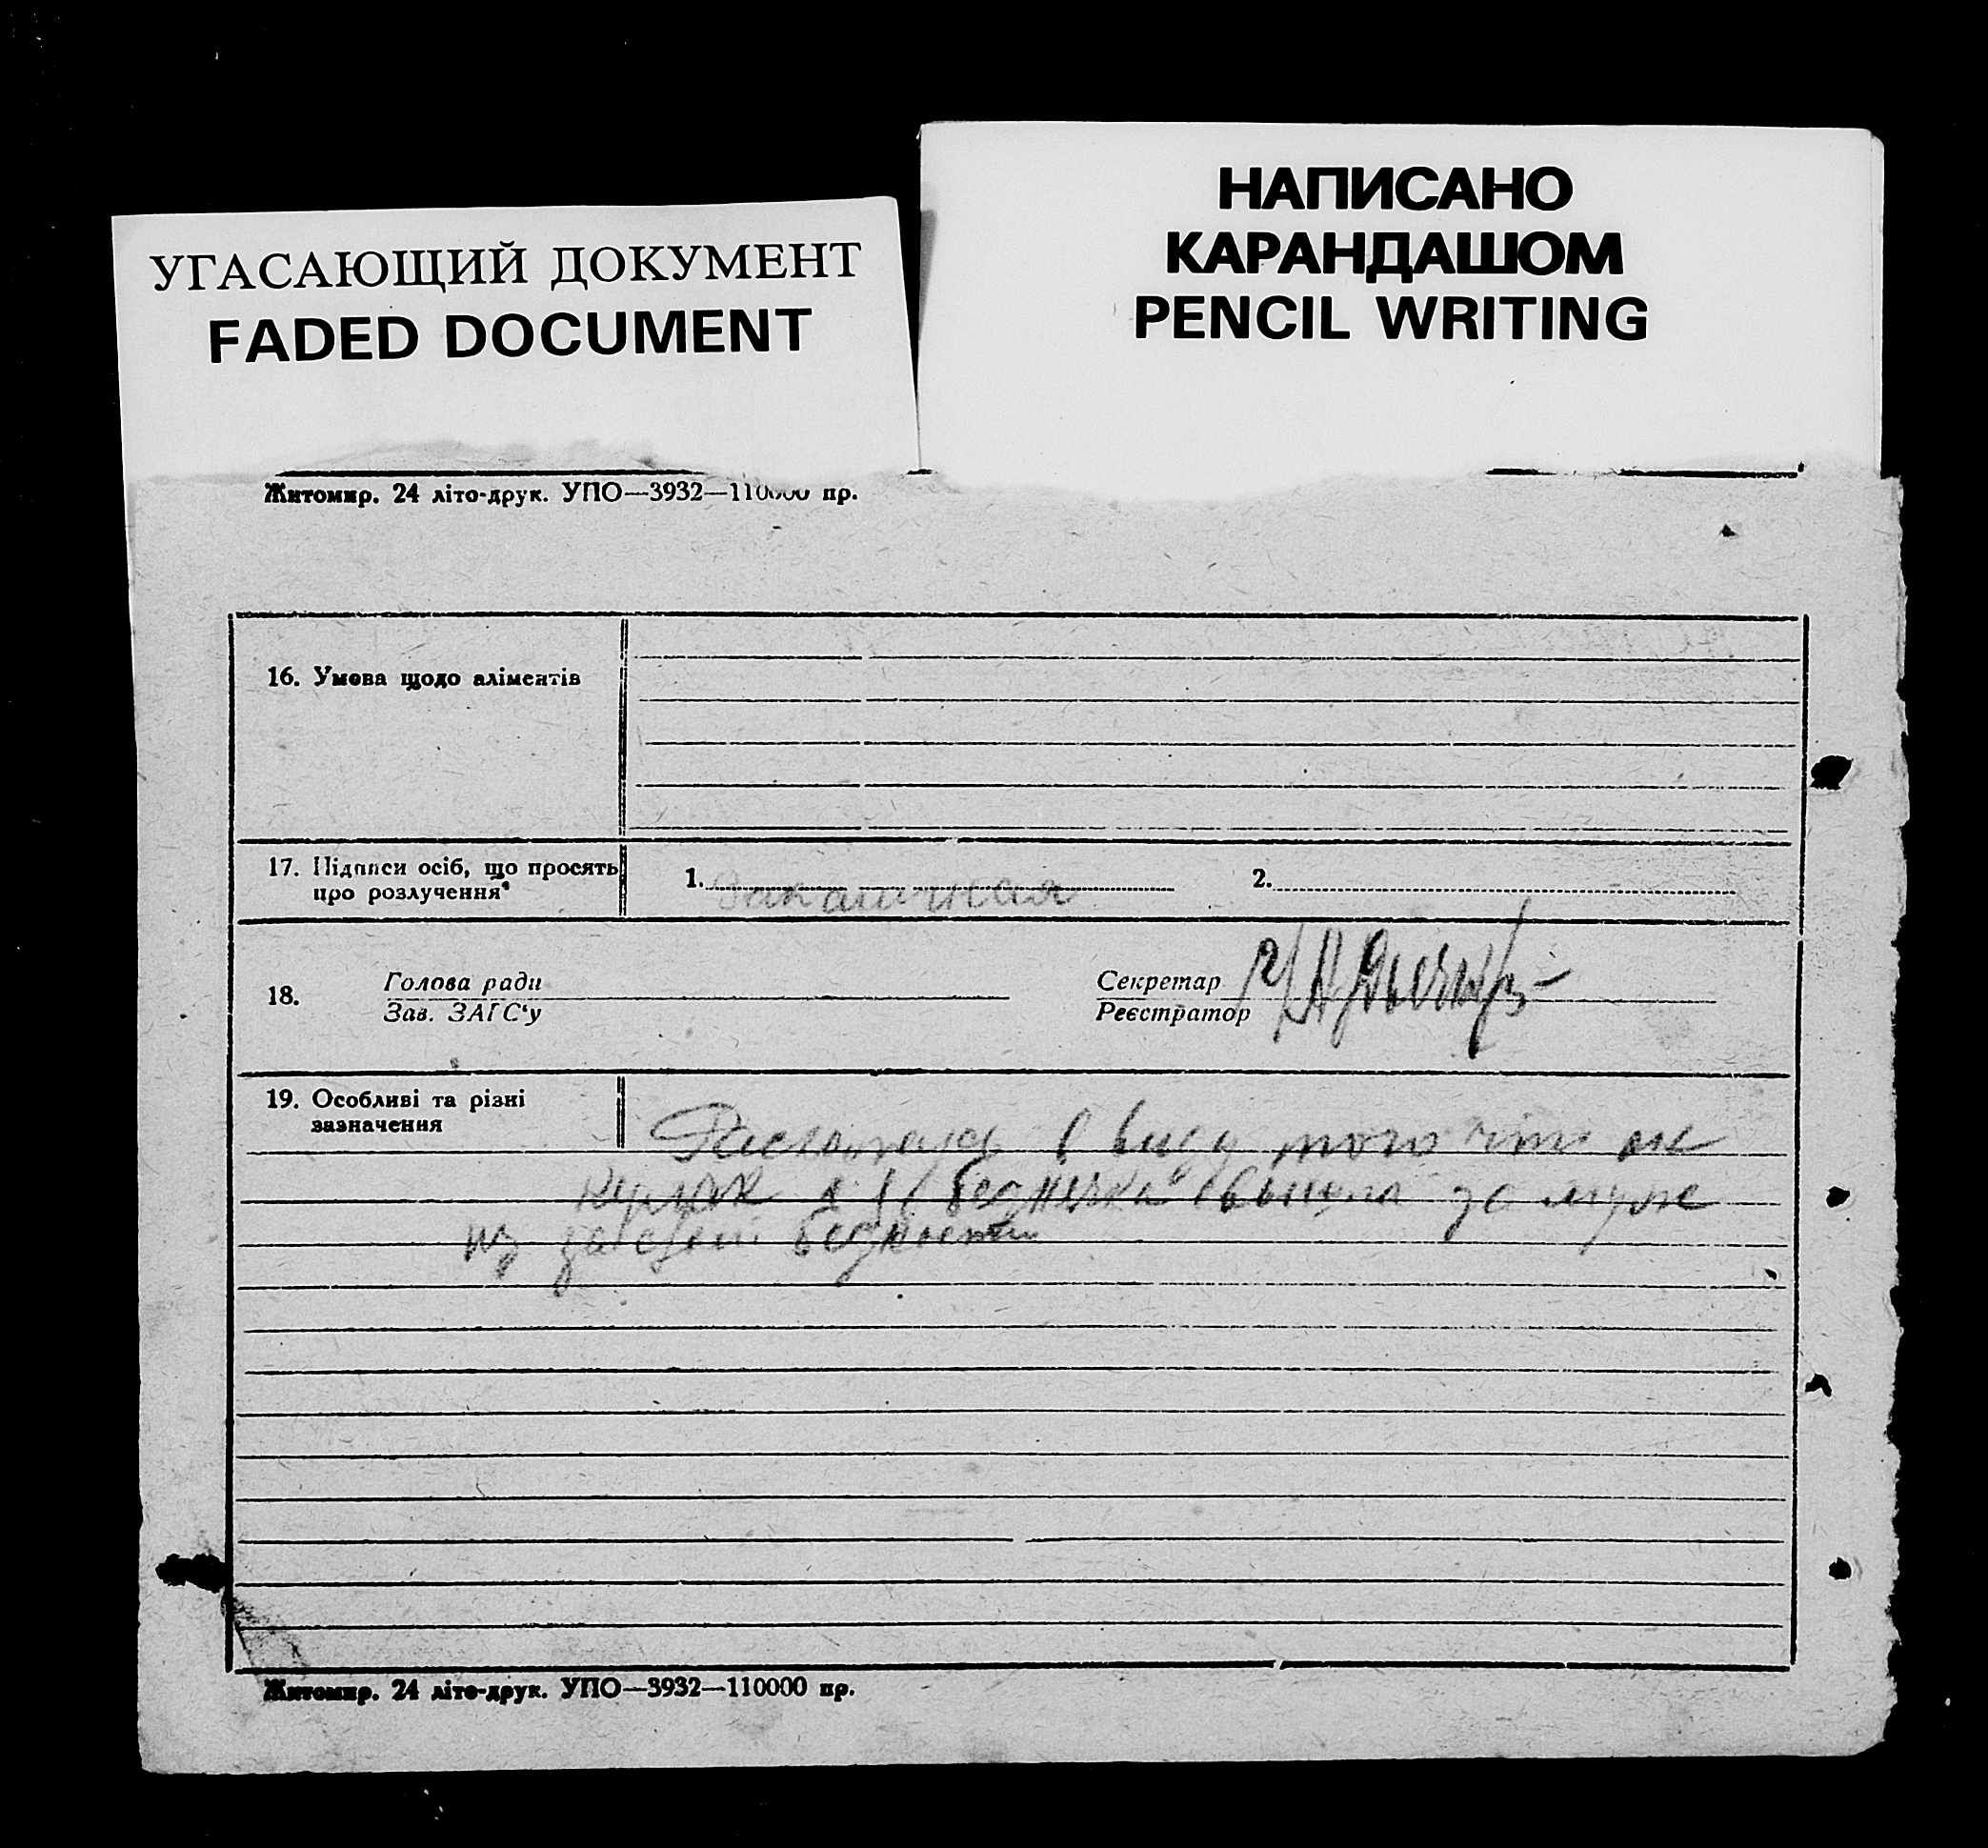 НАПИСАНО
КАРАНДАШОМ
PENCIL WRITING
УГАСАЮЩИЙ ДОКУМЕНТ
FADED DOCUMENT
Житомир. 24 літо-друк. УПО—3932—110000 пр.
16. Умова щодо аліментів
17. Підписи осіб, що просять
про розлучення
1.
2.
18.
Голова ради
Зав. ЗАГС'у
Секретар
Реєстратор
19. Особливі та різні
зазначення
в виду того что он
кулак а я "беднячка" вышла за муж
из за своей бедности
Житомир. 24 літо-друк. УПО—3932—110000 пр.